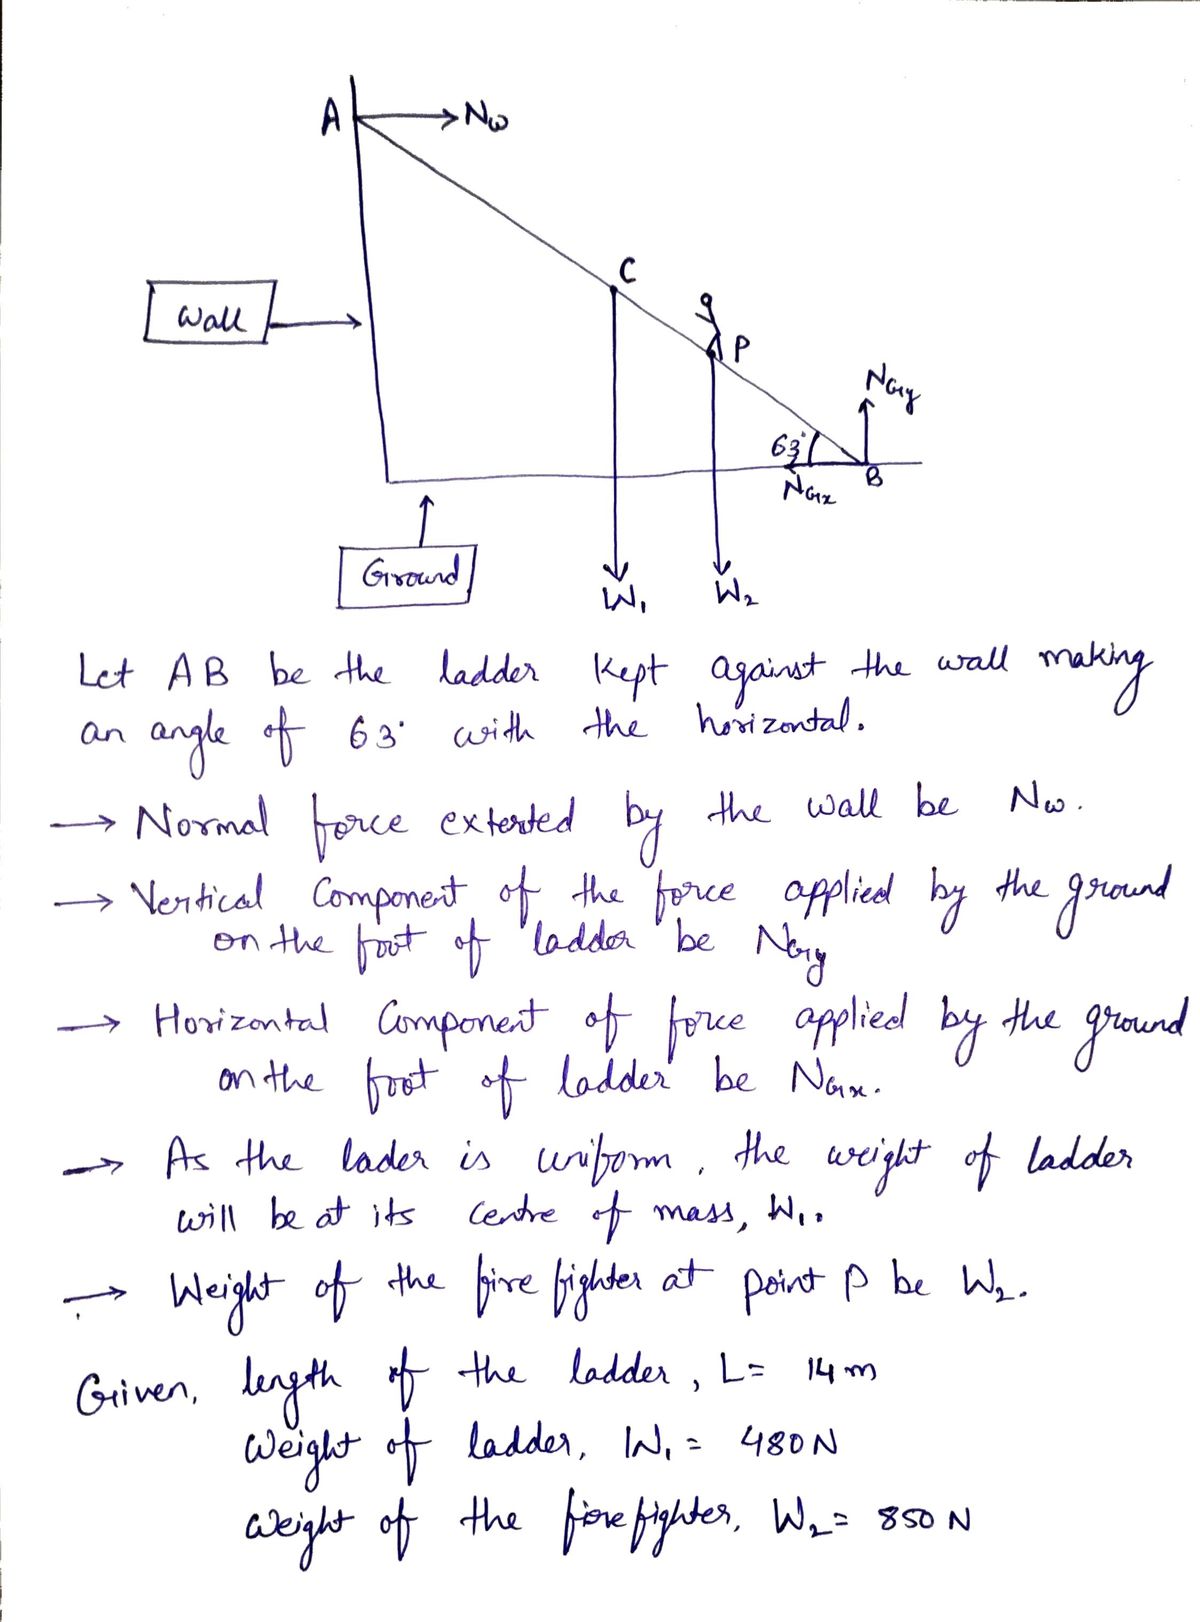 A
Nw
C
Wall
P
NGy
63°
B
NGx
Ground
W1
W2
Let AB be the ladder kept against the wall making
an angle of 63° with the horizontal.
→ Normal force exterted by the wall be Nw.
→ Vertical Component of the force applied by the ground
on the foot of ladder be NGy
→ Horizontal Component of force applied by the ground
on the foot of ladder be NGx.
→ As the lader is uniform, the weight of ladder
will be at its centre of mass, W1.
→ Weight of the fire fighter at point P be W2.
Given, length of the ladder, L = 14 m
Weight of ladder, W1 = 480 N
Weight of the fire fighter, W2 = 850 N